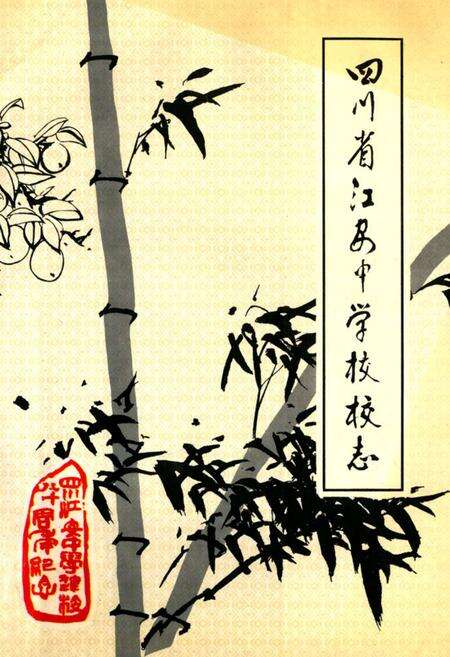 四川省江安中学校校志
四川江安中学建校
八十周年纪念